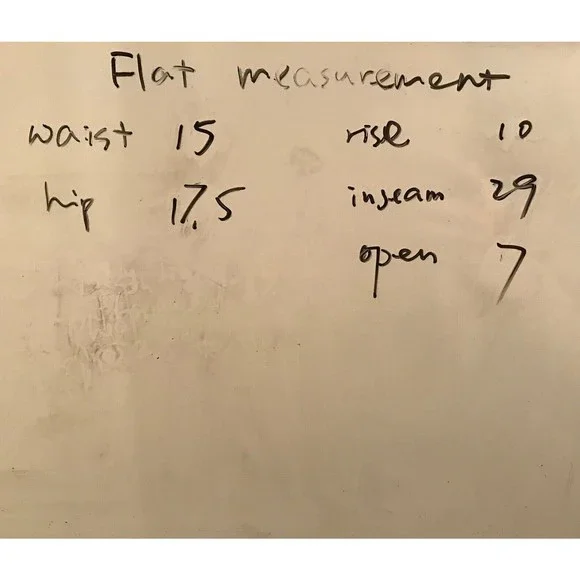 Flat measurement
waist 15 rise 10
hip 17.5 inseam 29
open 7